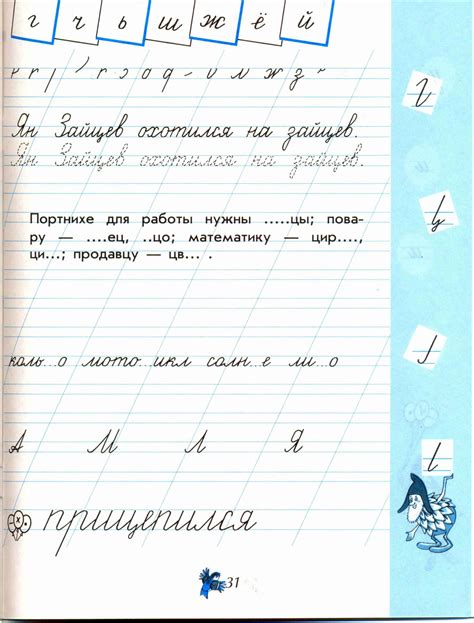 г ч ь ш ж ё й
Ян Зайцев охотился на зайцев.
Ян Зайцев охотился на зайцев.
Портнихе для работы нужны .....цы; пова-
ру — ....ец, ..цо; математику — цир....,
ци...; продавцу — цв... .
коль..о мото...икл солн..е ли...о
А М Л Я
прицепился
31